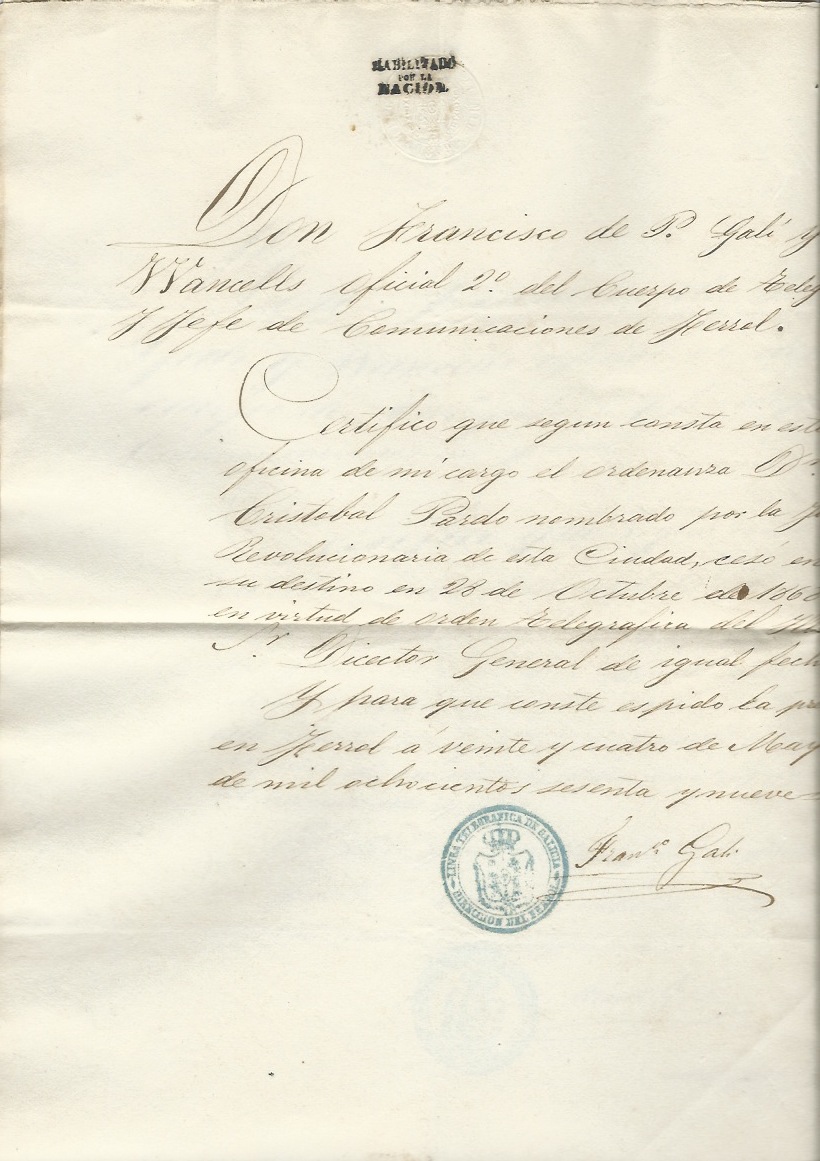 HABILITADO
POR LA
NACION.
Don Francisco de P. Galí y
Wancells Oficial 2º. del Cuerpo de Teleg
y Jefe de Comunicaciones de Ferrol.
Certifico que segun consta en est
oficina de mi cargo el ordenanza Dn.
Cristobal Pardo nombrado por la
Revolucionaria de esta Ciudad, cesó en
su destino en 28 de Octubre de 186
en virtud de orden telegrafica del
Sr. Director General de igual fech
Y para que conste espido la pre
en Ferrol á veinte y cuatro de May
de mil ochocientos sesenta y nueve
Franco. Galí
LINEA TELEGRAFICA DE GALICIA
DIRECCION DEL